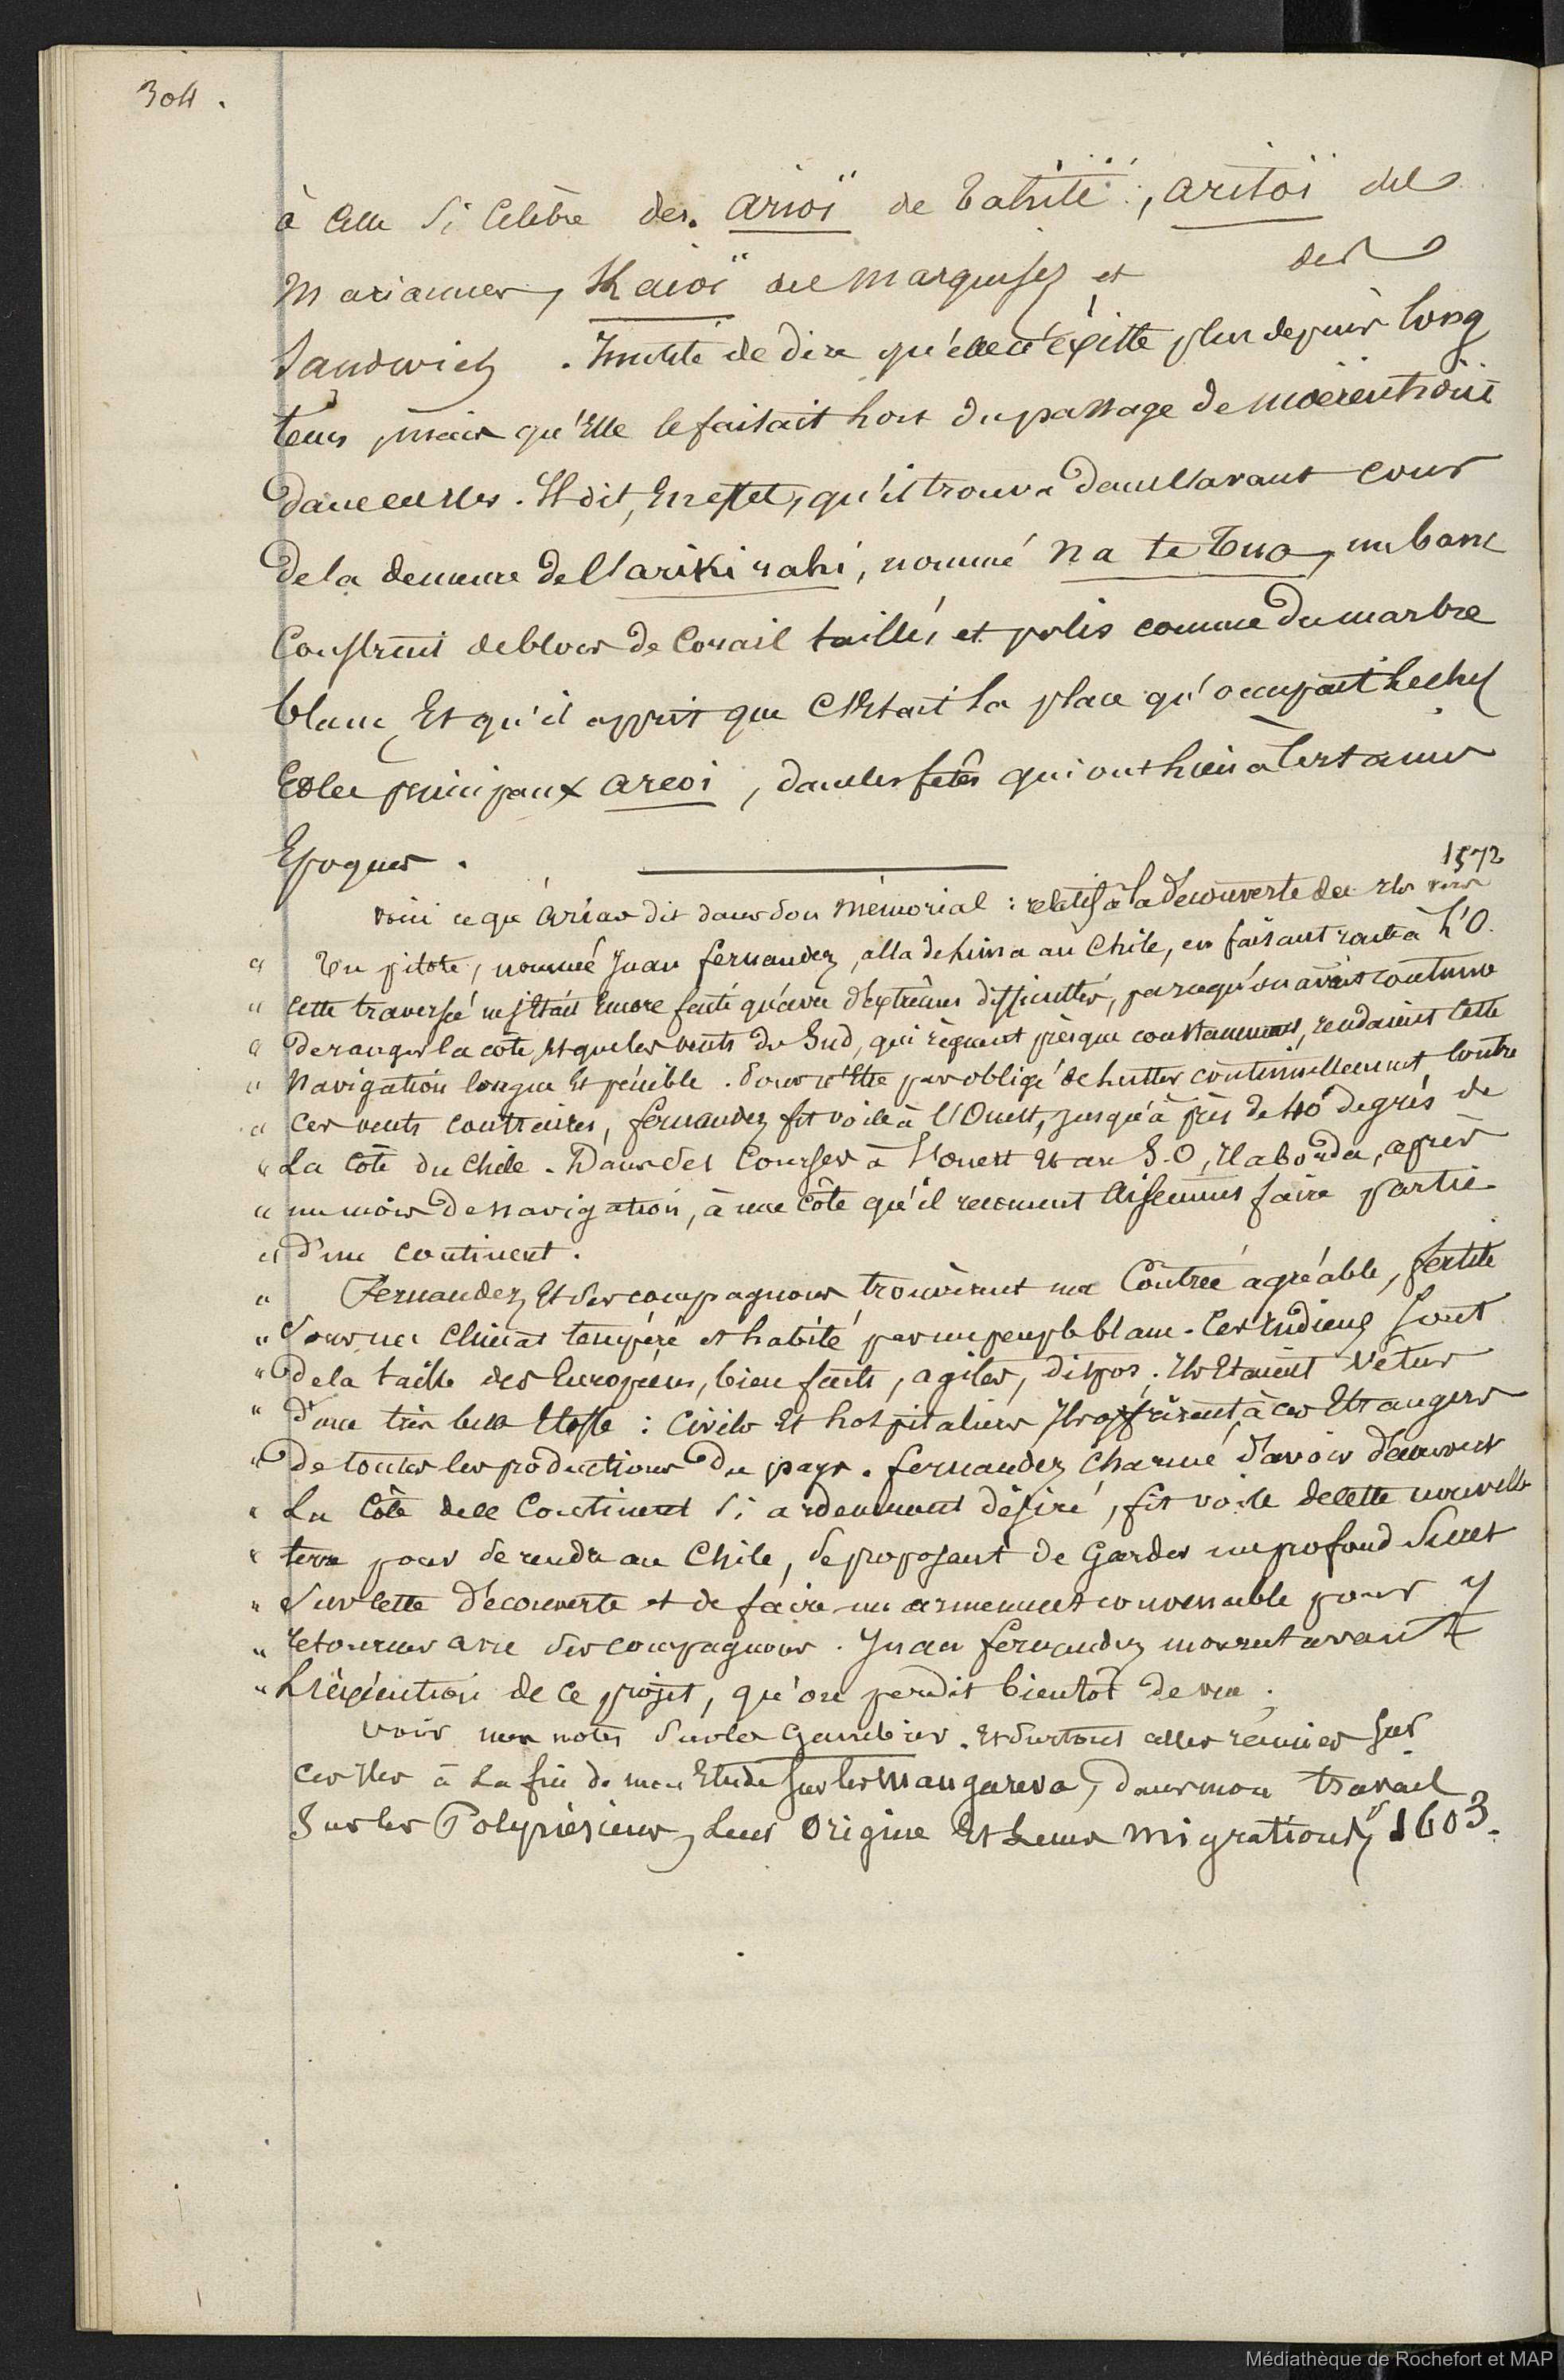 304.
à celle si célèbre des arioï de Tahiti, aritoï des
Mariannes, Kaioï des Marquises et des
Sandwich. Inutile de dire qu'elle n'existe plus depuis long
tems, mais qu'elle le faisait lors du passage de Moerenhout
dans ces îles. Il dit, en effet, qu'il trouva dans l'avant cour
de la demeure de l'ariki rahi, nommé Na te Tua, un banc
construit de blocs de corail taillés et polis comme du marbre
blanc, et qu'il apprit que c'était la place qu'occupait le chef
et les principaux areoi, dans les fêtes qui ont lieu à certaines
Epoques.
1572
voici ce que Arias dit dans son mémorial : relatif à la découverte des îles
" Un pilote, nommé Juan fernandez, alla de Lima au Chile, en faisant route à l'O.
" cette traversée ne s'était encore faite qu'avec d'extrêmes difficultés, parcequ'on avait coutume
" de ranger la côte, et que les vents du Sud, qui règnent presque constamment, rendaient cette
" Navigation longue et pénible. Pour n'être pas obligé de lutter continuellement contre
" ces vents contraires, fernandez fit voile à l'Ouest, jusqu'à près de 40 degrés de
" La côte du Chile. Dans ses courses à l'ouest et au S.O, il aborda, après
" un mois de navigation, à une côte qu'il reconnut aisément faire partie
" d'un continent.
" Fernandez et ses compagnons trouvèrent une contrée agréable, fertile
" sous un climat tempéré et habité par un peuple blanc. Ces Indiens sont
" de la taille des Européens, bien faits, agiles, dispos. Ils étaient vêtus
" d'une très belle étoffe : civils et hospitaliers ils offrirent à ces étrangers
" de toutes les productions du pays. fernandez charmé d'avoir découvert
" La côte de ce Continent si ardemment désiré, fit voile de cette nouvelle
" terre pour se rendre au Chile, se proposant de garder un profond secret
" sur cette découverte et de faire un armement convenable pour y
" retourner avec ses compagnons. Juan fernandez mourut avant
" L'exécution de ce projet, qu'on perdit bientôt de vue.
Voir mes notes sur les Gambier. et surtout celles réunies sur
ces îles à la fin de mon Etude sur les Mangareva, dans mon travail
Sur les Polynésiens, leur Origine et leurs migrations, 1603.
Médiathèque de Rochefort et MAP